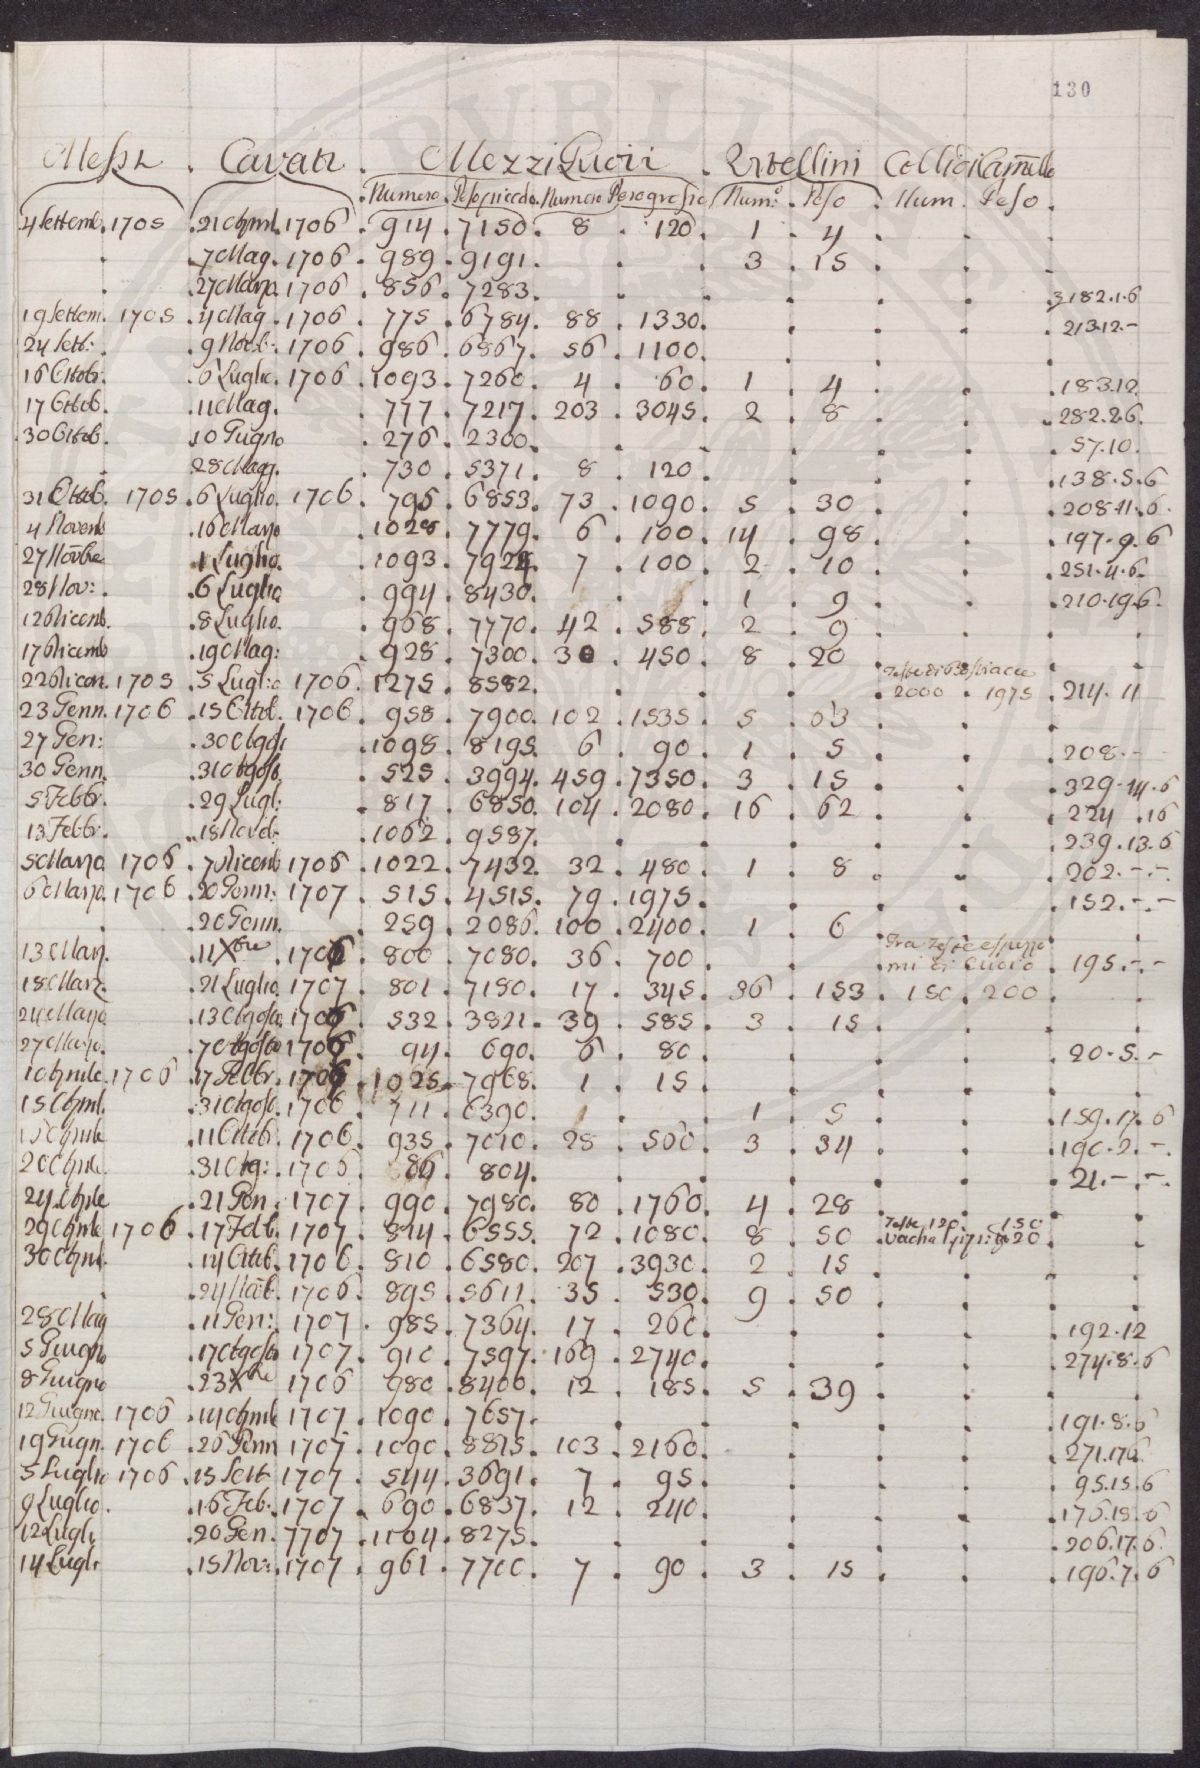 130
Messi . Cavati . Mezzi Cuoii . Vitellini Colli di Camello
Numero . Peso piccolo . Numero Peso grosso Num.º Peso . Num. Peso .
4 Settemb. 1705 . 21 Apml. 1706 . 914 . 7150 . 8 . 120 . 1 . 4
. 7 Mag. 1706 . 989 . 9191 . 3 . 15
. 27 Marzo 1706 . 856 . 7283 . 3182.1.6
19 Settem. 1705 . 4 Mag. 1706 . 775 . 6784 . 88 . 1330 . 213.12.-
24 Sett: . 9 Novb: 1706 . 986 . 6867 . 56 . 1100 .
16 Ottob: . 6 Luglio 1706 . 1093 . 7260 . 4 . 60 . 1 . 4 . 183.12
17 Ottob. . 11 Mag. . 777 . 7217 . 203 . 3045 . 2 . 8 . 282.2.6
30 Ottob . 10 Giugno . 276 . 2300 . 57.10.
28 Magg. . 730 . 5371 . 8 . 120 . 138.5.6
31 Ottob. 1705 . 6 Luglio 1706 . 795 . 6853 . 73 . 1090 . 5 . 30 . 208.11.6
4 Novemb . 16 Marzo . 1028 . 7779 . 6 . 100 . 14 . 98 . 197.9.6
27 Novbre . 1 Luglio . 1093 . 7924 . 7 . 100 . 2 . 10 . 251.4.6
28 Nov: . 6 Luglio . 994 . 8430 . 1 . 9 . 210.19.6
12 Dicemb. . 8 Luglio . 968 . 7770 . 42 . 588 . 2 . 9
17 Dicemb . 19 Mag: . 928 . 7300 . 30 . 450 . 8 . 20
22 Dicem. 1705 . 5 Luglio 1706 . 1275 . 8582 . 2000 . 1975 . 214.11
23 Genn. 1706 . 15 Ottob. 1706 . 958 . 7900 . 102 . 1535 . 5 . 63
27 Gen: . 30 Agos . 1098 . 8195 . 6 . 90 . 1 . 5 . 208.--
30 Genn. . 31 Agosto . 525 . 3994 . 459 . 7350 . 3 . 15 . 329.14.6
5 Febbr. . 29 Lugl: . 817 . 6850 . 104 . 2080 . 16 . 62 . 224.16
13 Febbr. . 18 Novb: . 1062 . 9587 . 239.13.6
5 Marzo 1706 . 7 Dicemb 1706 . 1022 . 7432 . 32 . 480 . 1 . 8 . 202.-.-
6 Marzo. 1706 . 20 Genn: 1707 . 515 . 4515 . 79 . 1975 . 152.-.-
. 20 Genn. . 259 . 2086 . 100 . 2400 . 1 . 6
13 Marz. . 11 Xbre 1706 . 800 . 7080 . 36 . 700 . Fra Teste e pezza
mi di Cuoio . 195.-.-
18 Marz. . 21 Luglio 1707 . 801 . 7180 . 17 . 345 . 36 . 153 . 150 . 200
24 Marzo . 13 Agosto 1706 . 532 . 3821 . 39 . 585 . 3 . 15
27 Marzo. . 7 Agosto 1706 . 94 . 690 . 6 . 80 . 20.5.-
10 Aprile 1706 . 17 Febbr. 1706 . 1025 . 7968 . 1 . 15
15 Apml. . 31 Agost. 1706 . 711 . 6390 . 1 . 5 . 159.17.6
Aprile . 11 Ottob. 1706 . 935 . 7010 . 28 . 560 . 3 . 34 . 190.2.-
20 Aprile . 31 Ag: 1706 . 86 . 804 . 21.-.-
24 Aprile . 21 Gen. 1707 . 990 . 7980 . 80 . 1760 . 4 . 28
29 Aprile 1706 . 17 Febb. 1707 . 814 . 6555 . 72 . 1080 . 8 . 50 . Teste 120 . 150
30 Apml. . 14 Ottob. 1706 . 810 . 6580 . 207 . 3930 . 2 . 15
. 24 . 1706 . 895 . 5611 . 35 . 530 . 9 . 50
28 Mag . 11 Gen: 1707 . 985 . 7364 . 17 . 260 . 192.12
5 Giugno . 17 Agosto 1707 . 910 . 7597 . 169 . 2740 . 274.8.6
8 Giugno . 23 Xbre 1706 . 980 . 8400 . 12 . 185 . 5 . 39
12 Giugno. 1706 . 14 Aprile 1707 . 1090 . 7657 . 191.8.6
19 Giugn. 1706 . 26 Genn 1707 . 1090 . 8875 . 103 . 2160 . 271.17.6
5 Luglio 1706 . 15 Sett. 1707 . 544 . 3691 . 7 . 95 . 95.15.6
9 Luglio . 16 Feb. 1707 . 690 . 6837 . 12 . 240 . 176.18.6
12 Lugli . 20 Gen. 7707 . 1104 . 8275 . 206.17.6
14 Lugli . 15 Nov: 1707 . 961 . 7700 . 7 . 90 . 3 . 15 . 196.7.6